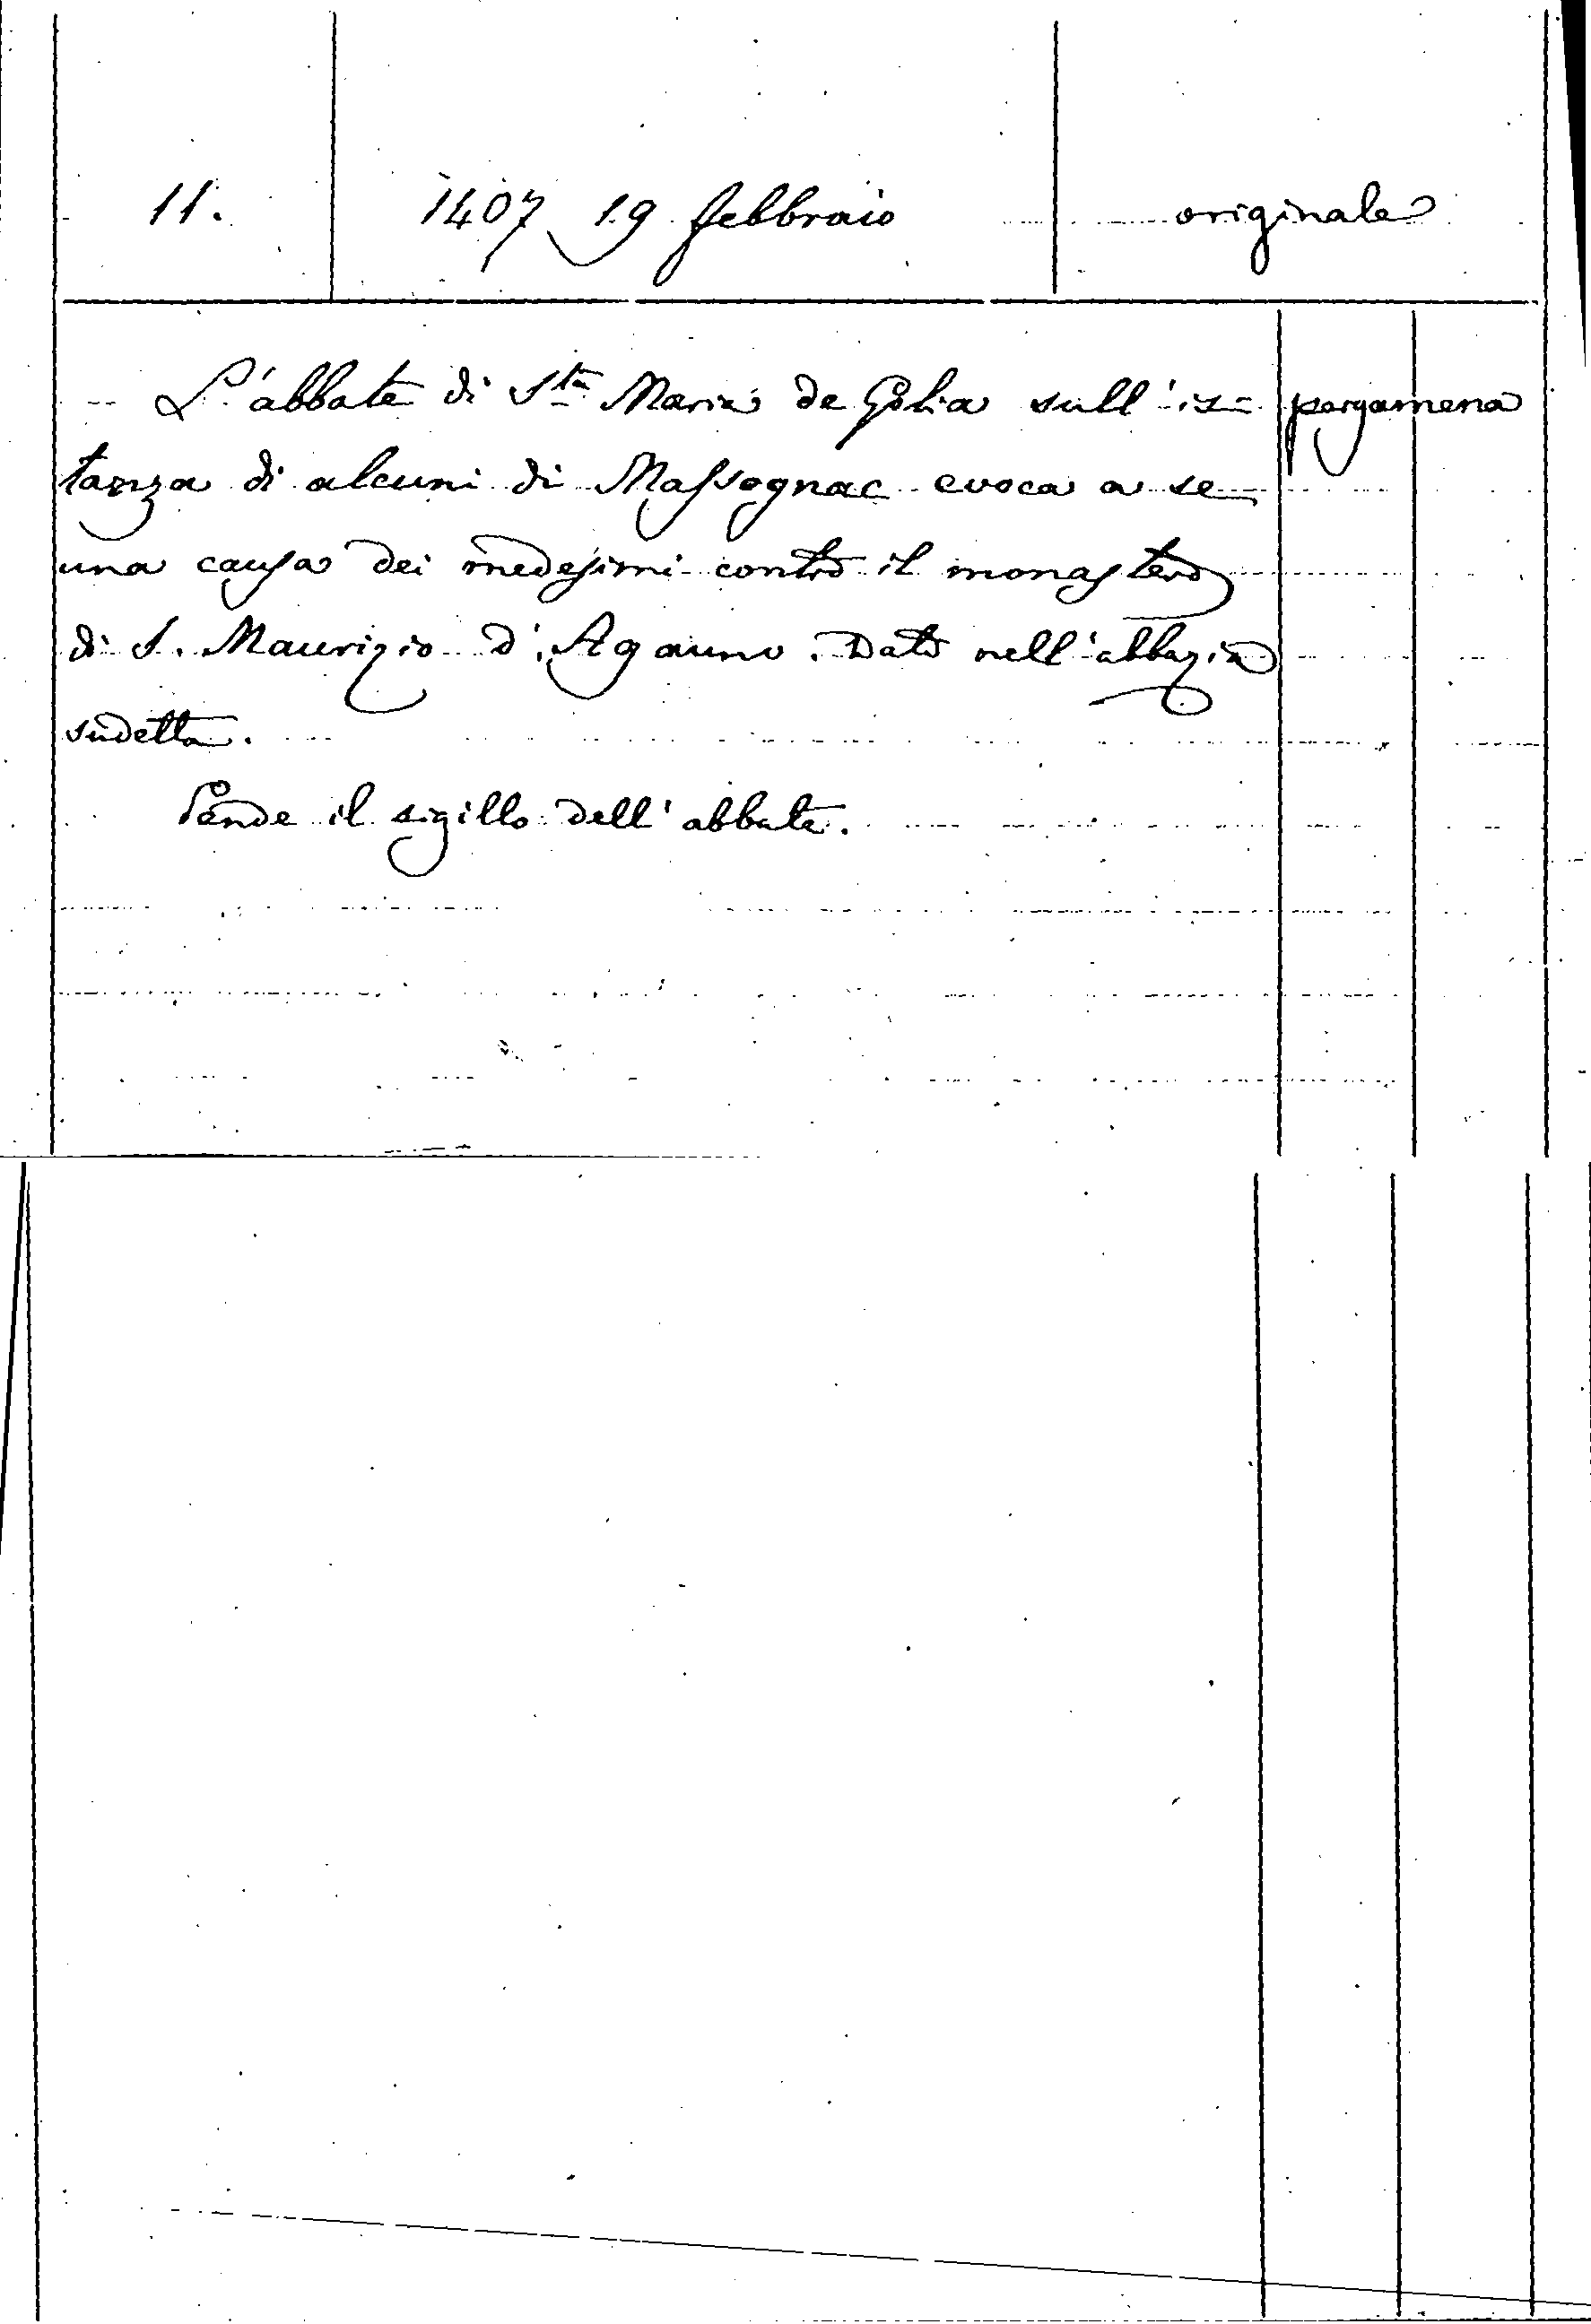 11. 1407 19 febbraio originale
L'abbate di Sta Maria de Golia sull'is= pergamena
tanza di alcuni di Massognac evoca a se
una causa dei medesimi contro il monastero
di S. Maurizio d'Agauno. Dato nell'abbazia
sudetta.
Pende il sigillo dell'abbate.